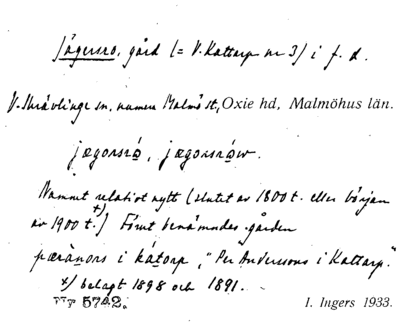 Jägersro, gård (= V. Kattarp nr 3) i f. d.
V. Skrävlinge sn, numera Malmö st, Oxie hd, Malmöhus län.
jægorsró, jægorsróⱳ.
Namnet relativt nytt (slutet av 1800 t. eller början
av 1900 t. +)) Förut benämndes gården
pæránors i kátorp, "Per Anderssons i Kattarp."
+) belagt 1898 och 1891.
5742. I. Ingers 1933.